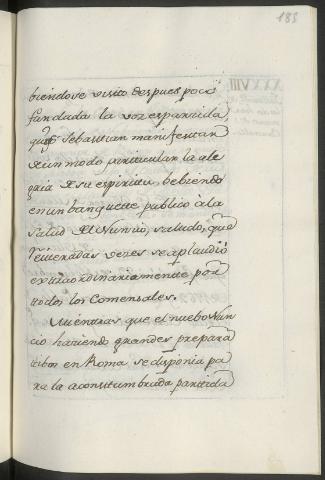 183
biendose visto despues por in
fundada la voz esparcida,
quiso Sebastian manifestar
de un modo particular la ale
gria de su espiritu, bebiendo
en un banquete publico à la
salud del Nuncio, saludo, que
reiteradas veces se aplaudiò
extraordinariamente por
todos los Comensales.
Mientras que el nuebo Nun
cio haziendo grandes prepara
tibos en Roma se disponia pa
ra la acostumbrada partida
XXXVIII